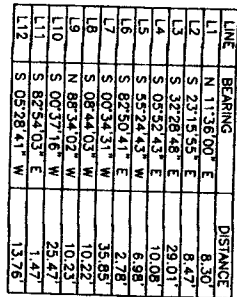 LINE BEARING DISTANCE
L1 N 11°36'00" E 8.30'
L2 S 23°15'55" E 8.47'
L3 S 32°28'48" E 29.01'
L4 S 05°52'43" E 10.08'
L5 S 55°24'43" W 6.98'
L6 S 82°50'41" E 2.78'
L7 S 00°34'31" W 35.85'
L8 S 08°44'03" W 10.22'
L9 N 88°34'02" W 10.23'
L10 S 00°37'16" W 25.47'
L11 S 82°54'03" E 1.47'
L12 S 05°28'41" W 13.76'